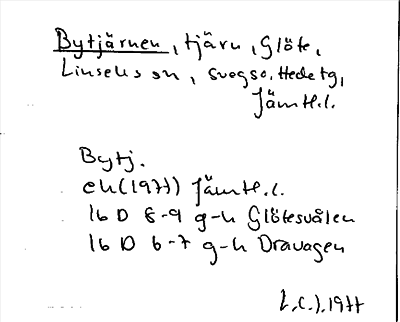 Bytjärnen, tjärn, Glöte,
Linsells sn, Svegs tg, Hede tg,
Jämtl.l.
Bytj.
ek (1977) Jämtl.l.
16 D 8-9 g-h Glötesvålen
16 D 6-7 g-h Dravagen
1977